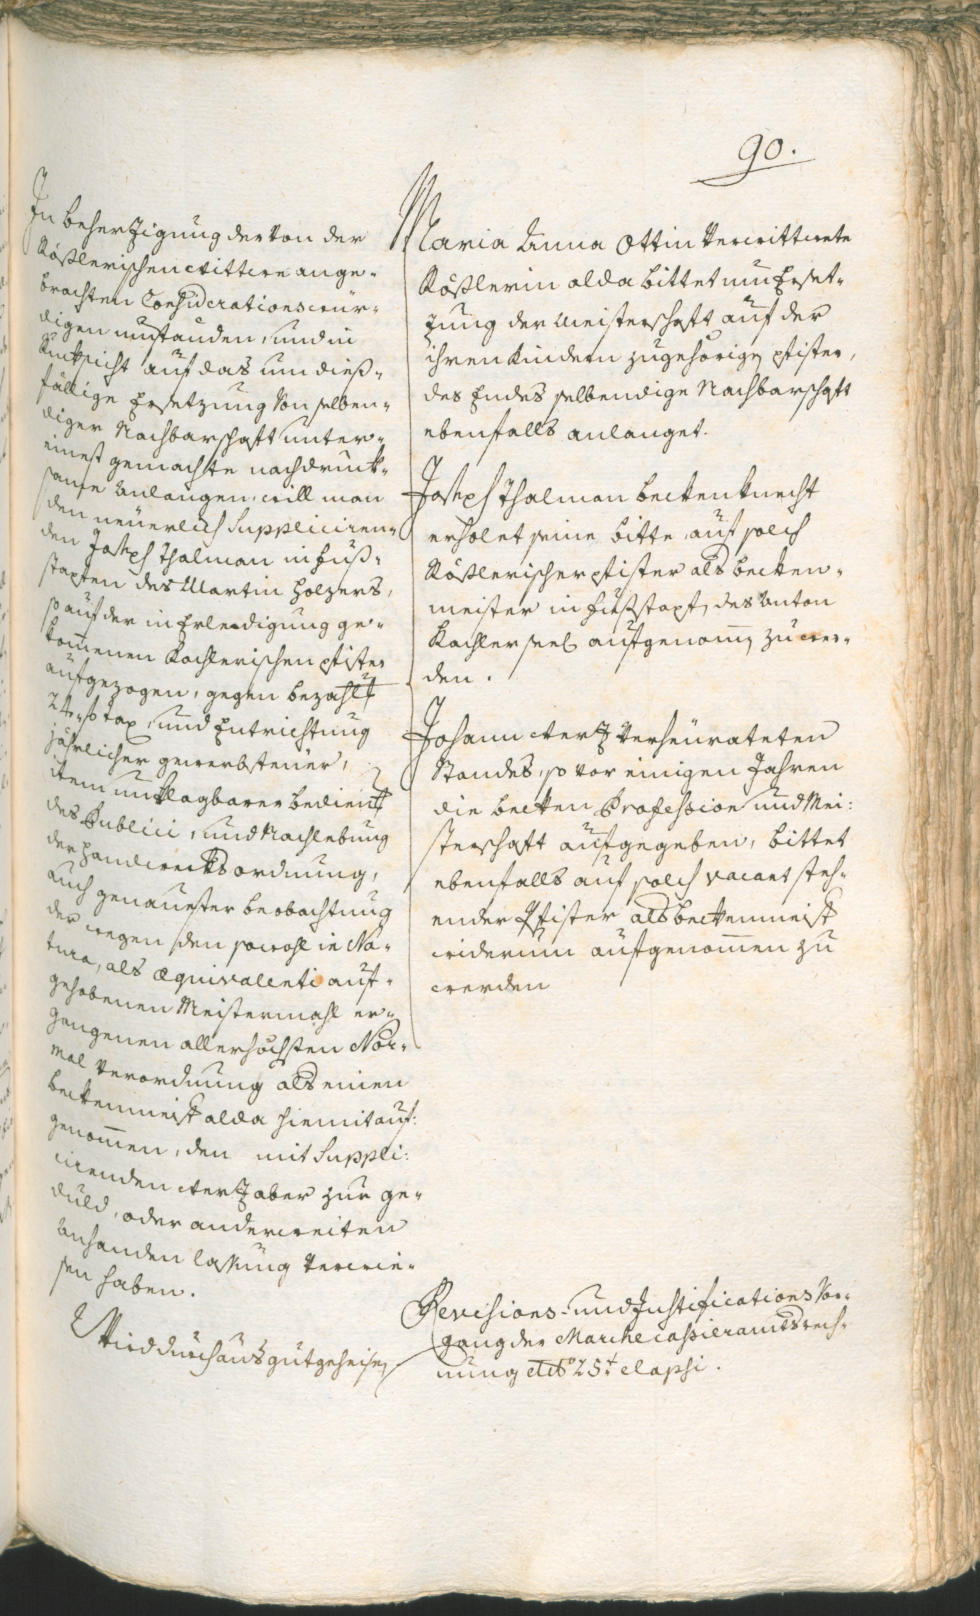 90.
In beherzigung der von der
Kößlerischen Wittwe ange-
brachten Considerationswür-
digen umständen, und in
Rucksicht auf das um dieß-
fällige Ersetzung von selben-
diger Nachbarschaft unter-
einest gemachte nachdruck-
same anlangen, will man
den neüerlich Suppliciren-
den Joseph Thalman in fuß-
stapfen des Martin Holzers,
so auf der in Erledigung ge-
kom̄enen Kachlerischen pfister
aufgezogen, gegen bezahlt
tax, und Entrichtung
jährlicher gewerbsteüer,
item unklagbarer bedient
des Publici, und Nachlebung
der Handwerksordnung,
auch genauester beobachtung
der wegen den sowohl in Na-
tura, als æquivalenti auf-
gehobenen Meistermahl er-
gangenen allerhöchsten Nor-
mal Verordnung als einen
beckenmeist alda hiemit auf:
genom̄en, den mit Suppli:
cirenden Merz aber zur ge-
duld, oder anderweiten
anhanden lassung verwie-
sen haben.
Wird durchaus gutgeheisen
Maria Anna Ottin verwittwete
Kößlerin alda bittet um Erset-
zung der Meisterschaft auf der
ihren Kindern zugehörigen pfister,
des Endes selbendige Nachbarschaft
ebenfalls anlanget.
Joseph Thalman beckenknecht
erholet seine bitte auf solch
Kößlerischer pfister als becken-
meister in fußstapfen des Anton
Kachler seel aufgenom̄en zu wer-
den.
Johann Merz verheürateten
Standes, so vor einigen Jahren
die becken Profession und Mei:
sterschaft aufgegeben, bittet
ebenfalls auf solch vacant steh-
ender Pfister als beckenmeist
widerum aufgenom̄en zu
werden
Revisions- und Justifications Vor-
gang der Marche cassieramtsrech-
nung 25t elapsi.